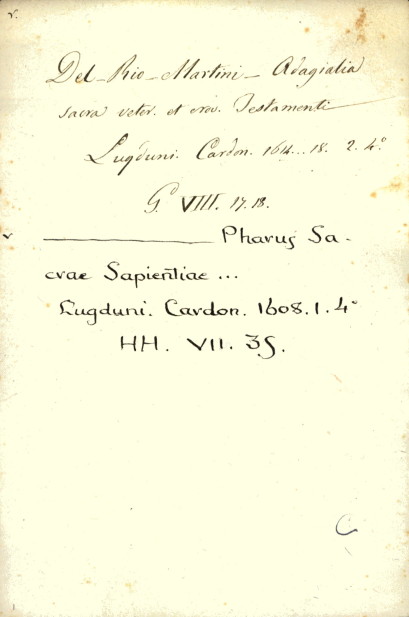 v.
Del-Rio-Martini-Adagialia
sacra veter. et nov. Testamenti
Lugduni. Cardon. 1614...18. 2. 4°
G. VIII. 17. 18.
v ———— Pharus Sa-
crae Sapientiae ...
Lugduni. Cardon. 1608. 1. 4°
HH. VII. 35.
C